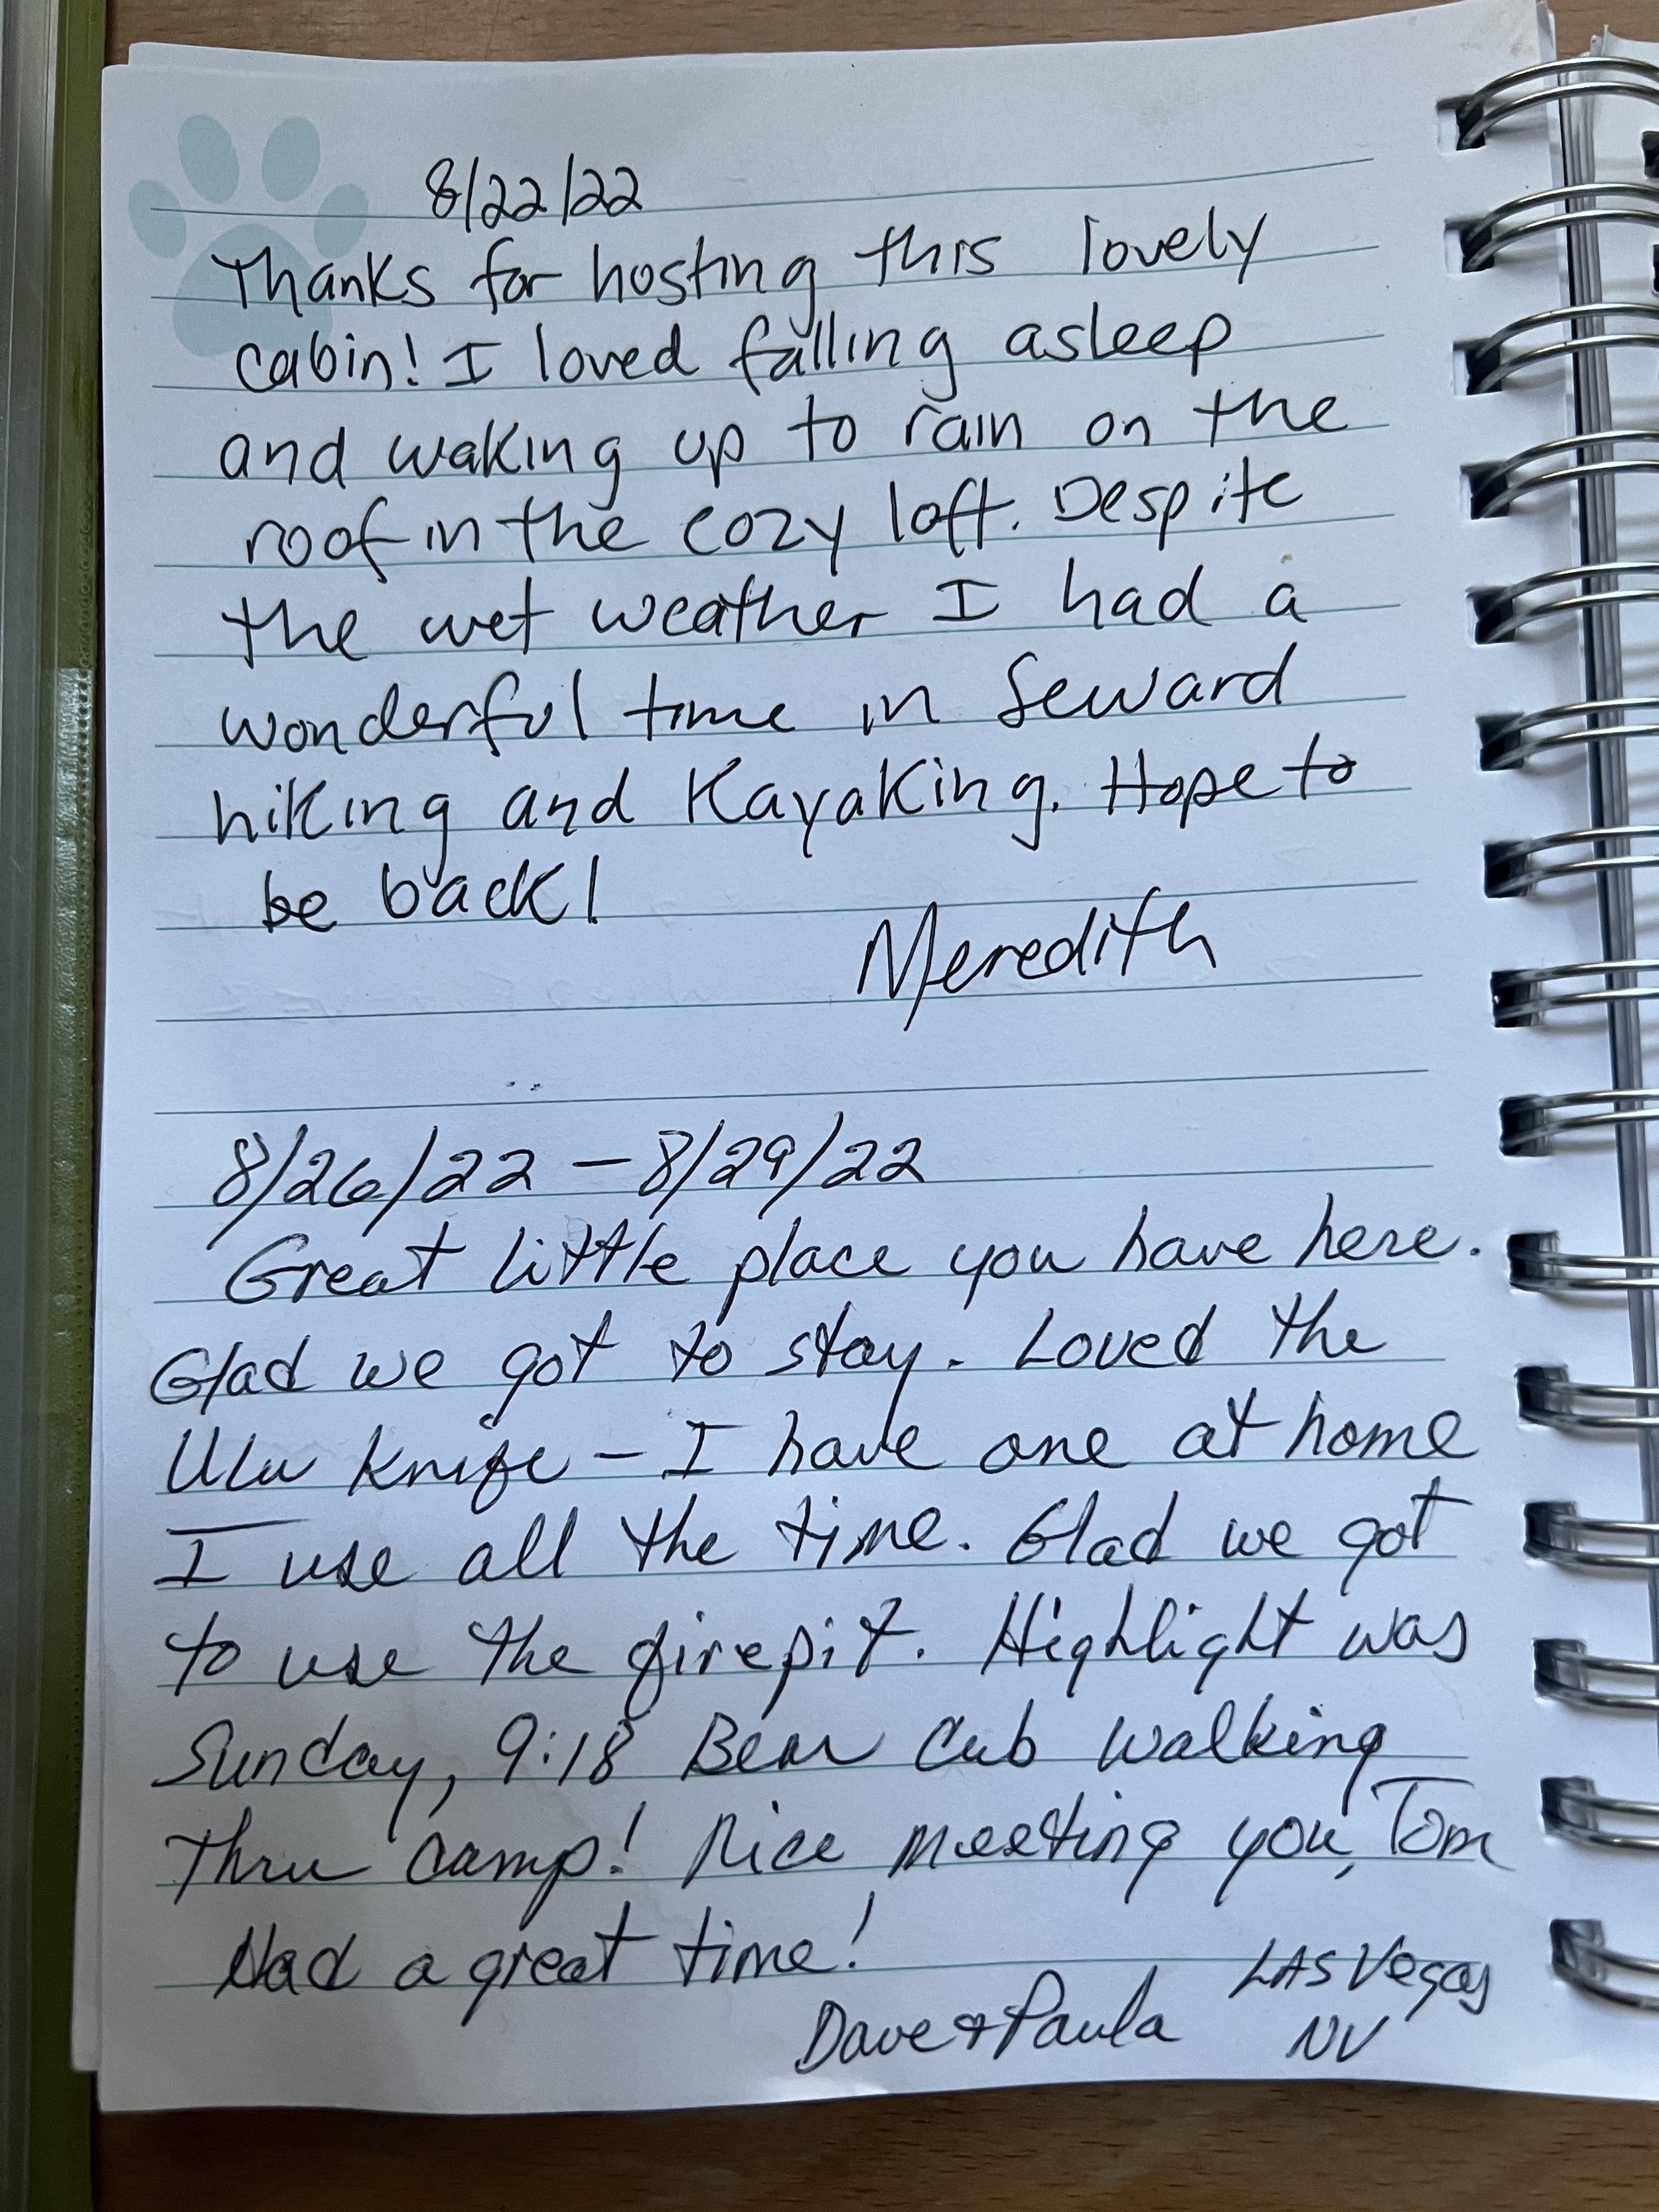 8/22/22
Thanks for hosting this lovely
cabin! I loved falling asleep
and waking up to rain on the
roof in the cozy loft. Despite
the wet weather I had a
wonderful time in Seward
hiking and Kayaking. Hope to
be back!
Meredith
8/26/22 – 8/29/22
Great little place you have here.
Glad we got to stay. Loved the
Ulu knife – I have one at home
I use all the time. Glad we got
to use the firepit. Highlight was
Sunday, 9:18 Bear Cub walking
thru camp! Nice meeting you, Tom
Had a great time!
Dave & Paula LAS Vegas
NV